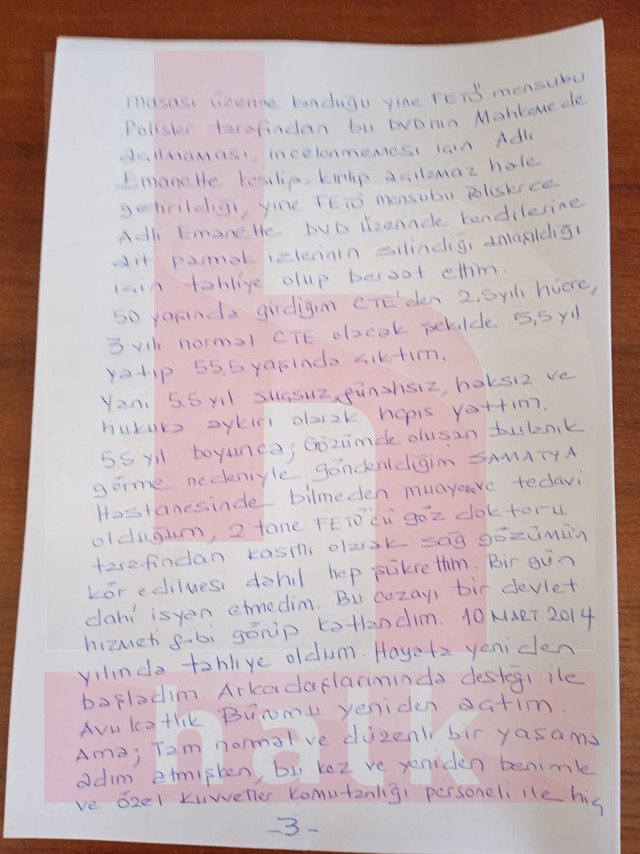 masası üzerine konduğu yine FETÖ mensubu
Polisler tarafından bu DVD'nin Mahkemede
açılmaması, incelenmemesi için Adli
Emanette kesilip, kırılıp açılamaz hale
getirildiği, yine FETÖ mensubu Polislerce
Adli Emanette DVD üzerinde kendilerine
ait parmak izlerinin silindiği anlaşıldığı
için tahliye olup beraat ettim.
50 yaşında girdiğim CTE'den 2,5 yılı hücre,
3 yılı normal CTE olacak şekilde 5,5 yıl
yatıp 55,5 yaşında çıktım.
Yani 5.5 yıl suçsuz, günahsız, haksız ve
hukuka aykırı olarak hapis yattım.
5.5 yıl boyunca; Gözümde oluşan bulanık
görme nedeniyle gönderildiğim SAMATYA
Hastanesinde bilmeden muayene ve tedavi
olduğum, 2 tane FETÖ'cü göz doktoru
tarafından kasıtlı olarak sağ gözümün
kör edilmesi dahil hep şükrettim. Bir gün
dahi isyan etmedim. Bu cezayı bir devlet
hizmeti gibi görüp katlandım. 10 MART 2014
yılında tahliye oldum. Hayata yeniden
başladım. Arkadaşlarımında desteği ile
Avukatlık Büromu yeniden açtım.
Ama; Tam normal ve düzenli bir yaşama
adım atmışken, bu kez ve yeniden benimle
ve özel kuvvetler komutanlığı personeli ile hiç
-3-
halk